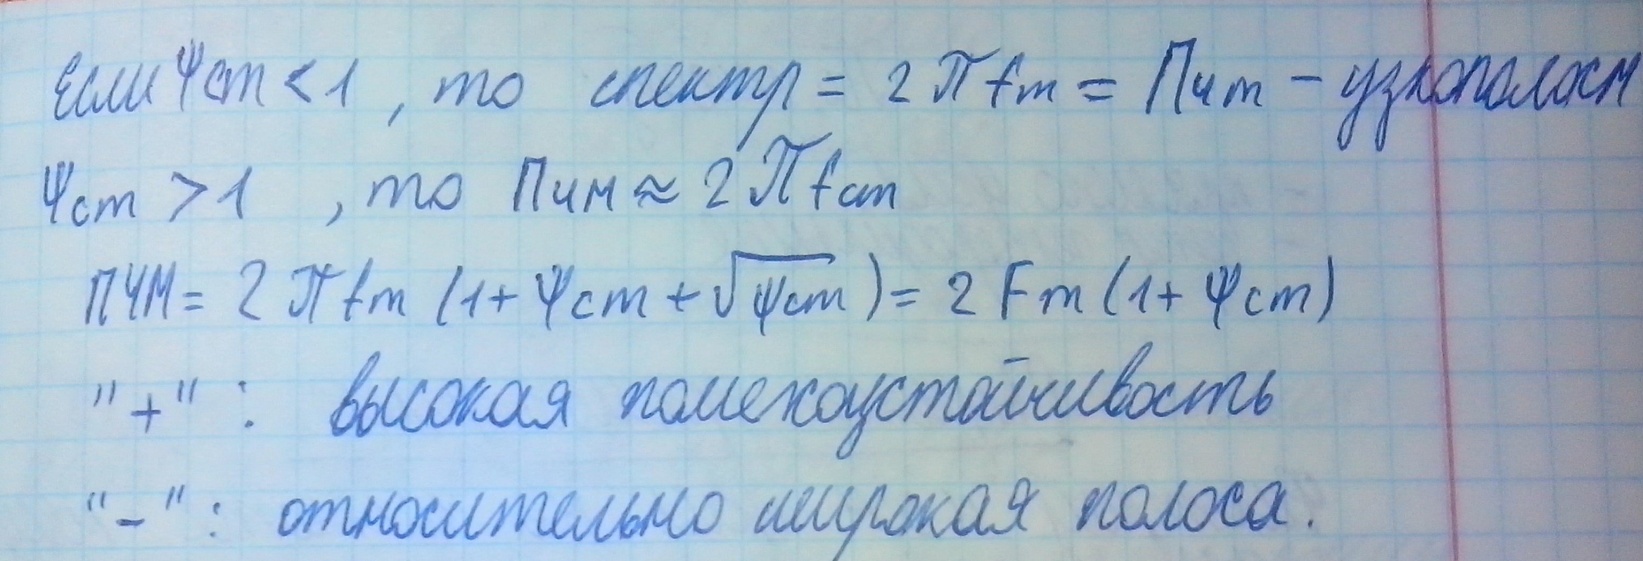 Если Ψcm < 1, то спектр = 2πfm = Пчт - узкополосн
Ψcm > 1, то Пчм ≈ 2πfcm
ПЧМ = 2πfm (1 + Ψcm + √Ψcm) = 2Fm (1 + Ψcm)
"+": высокая помехоустойчивость
"-": относительно широкая полоса.